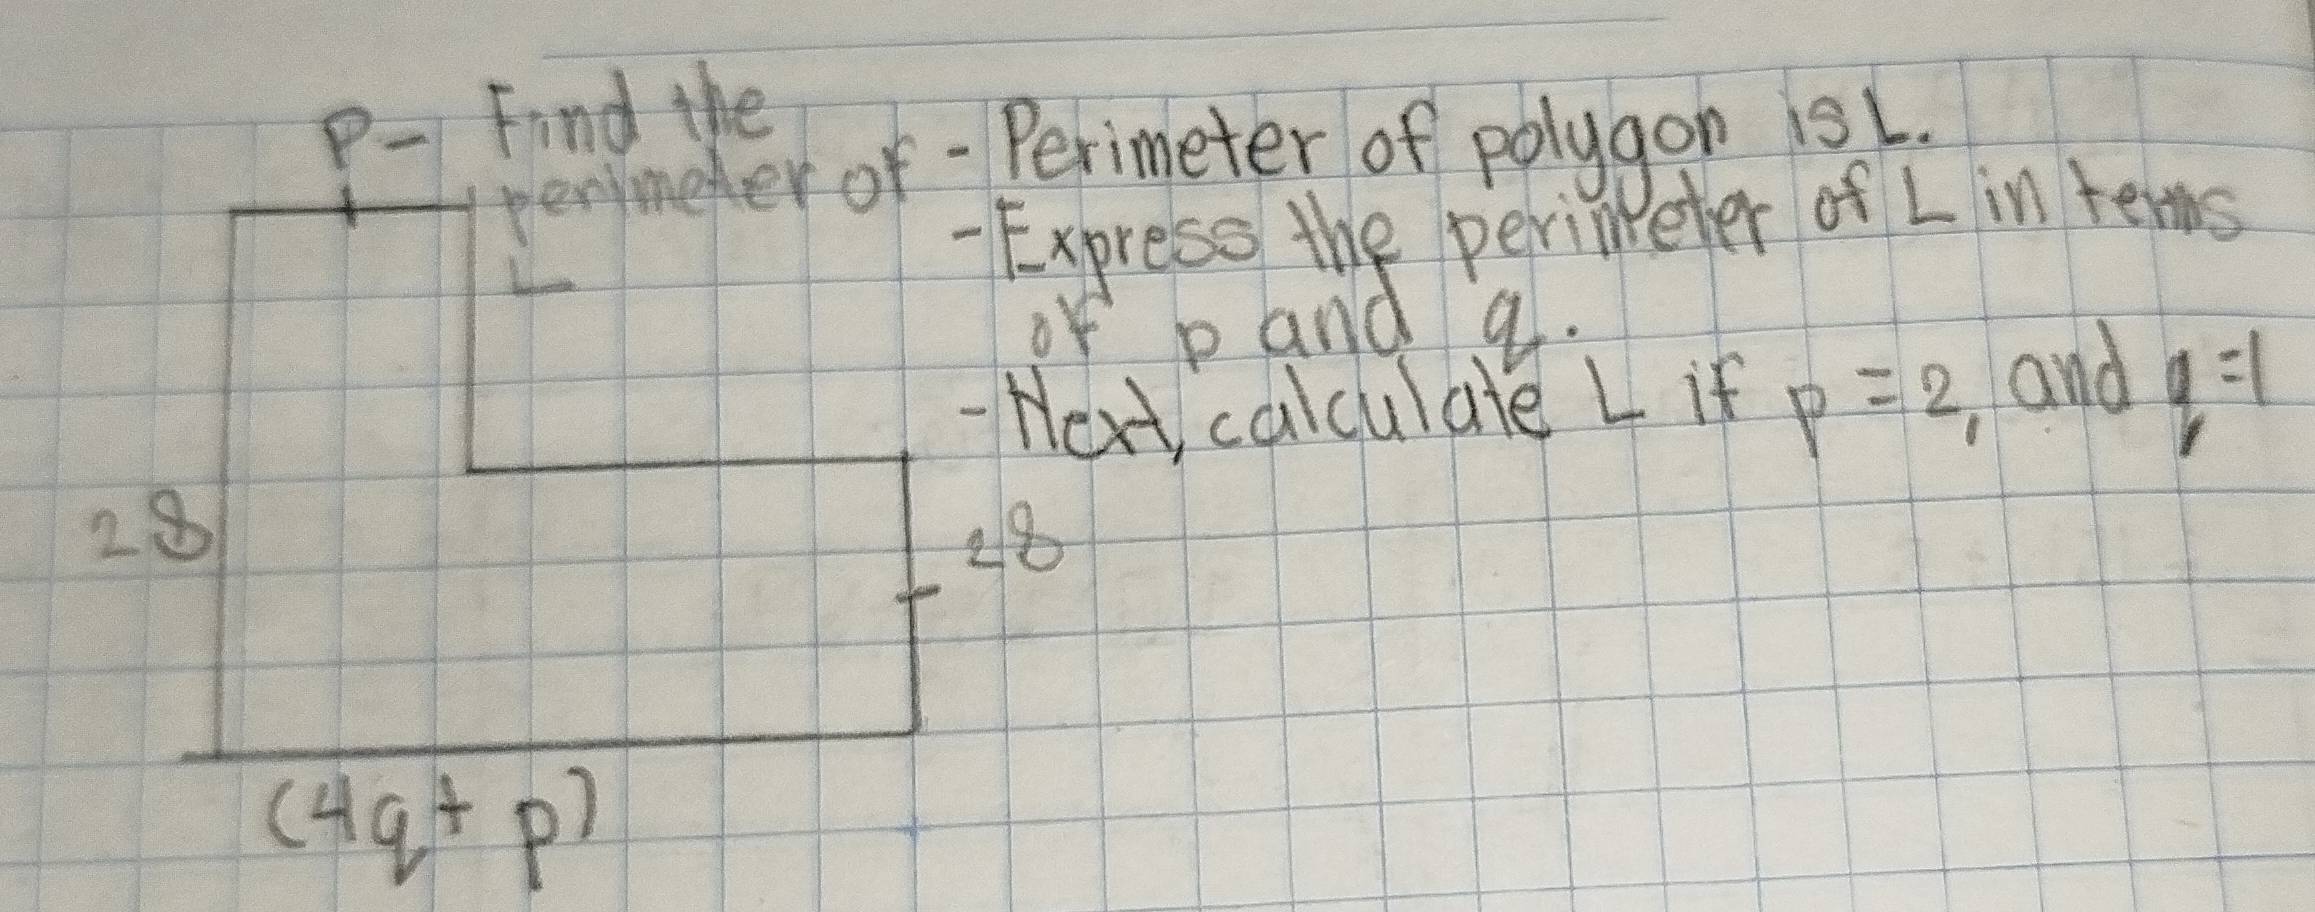 P- Find the
perimeter of
L
- Perimeter of polygon is L.
- Express the perimeter of L in terms
of p and q.
- Next, calculate L if p = 2, and q = 1
28
28
(4q + p)